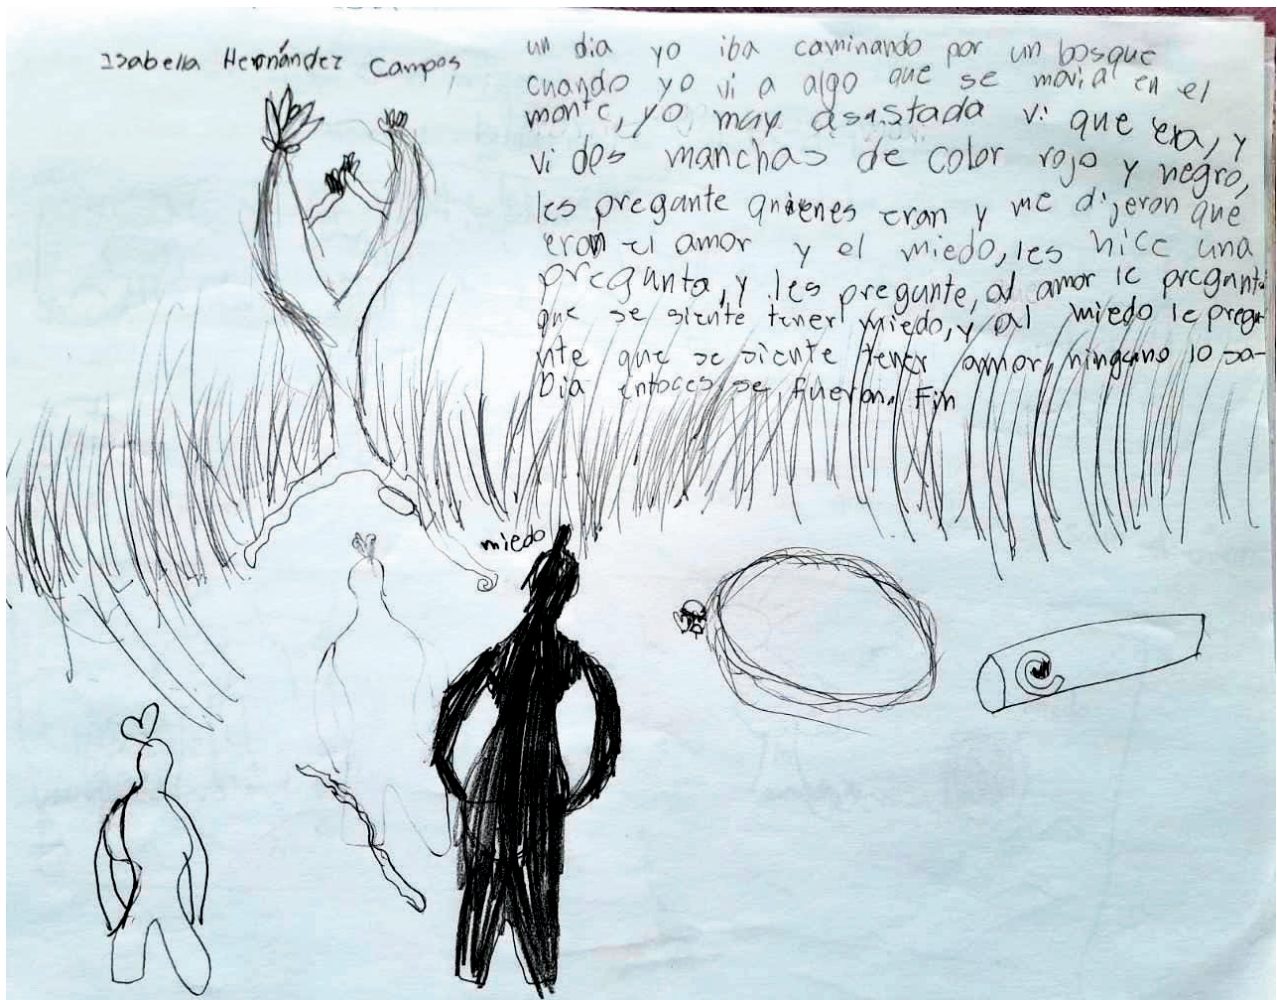 Isabella Hernández Campos
un dia yo iba caminando por un bosque
cuando yo vi a algo que se movia en el
monte, yo muy asustada vi que era, y
vi dos manchas de color rojo y negro,
les pregunte quienes eran y me dijeron que
eron el amor y el miedo, les hice una
pregunta, y les pregunte, al amor le pregunté
que se siente tener miedo, y al miedo le pregu-
nte que se siente tener amor, ninguno lo sa-
bia entoces se fueron. Fin
miedo